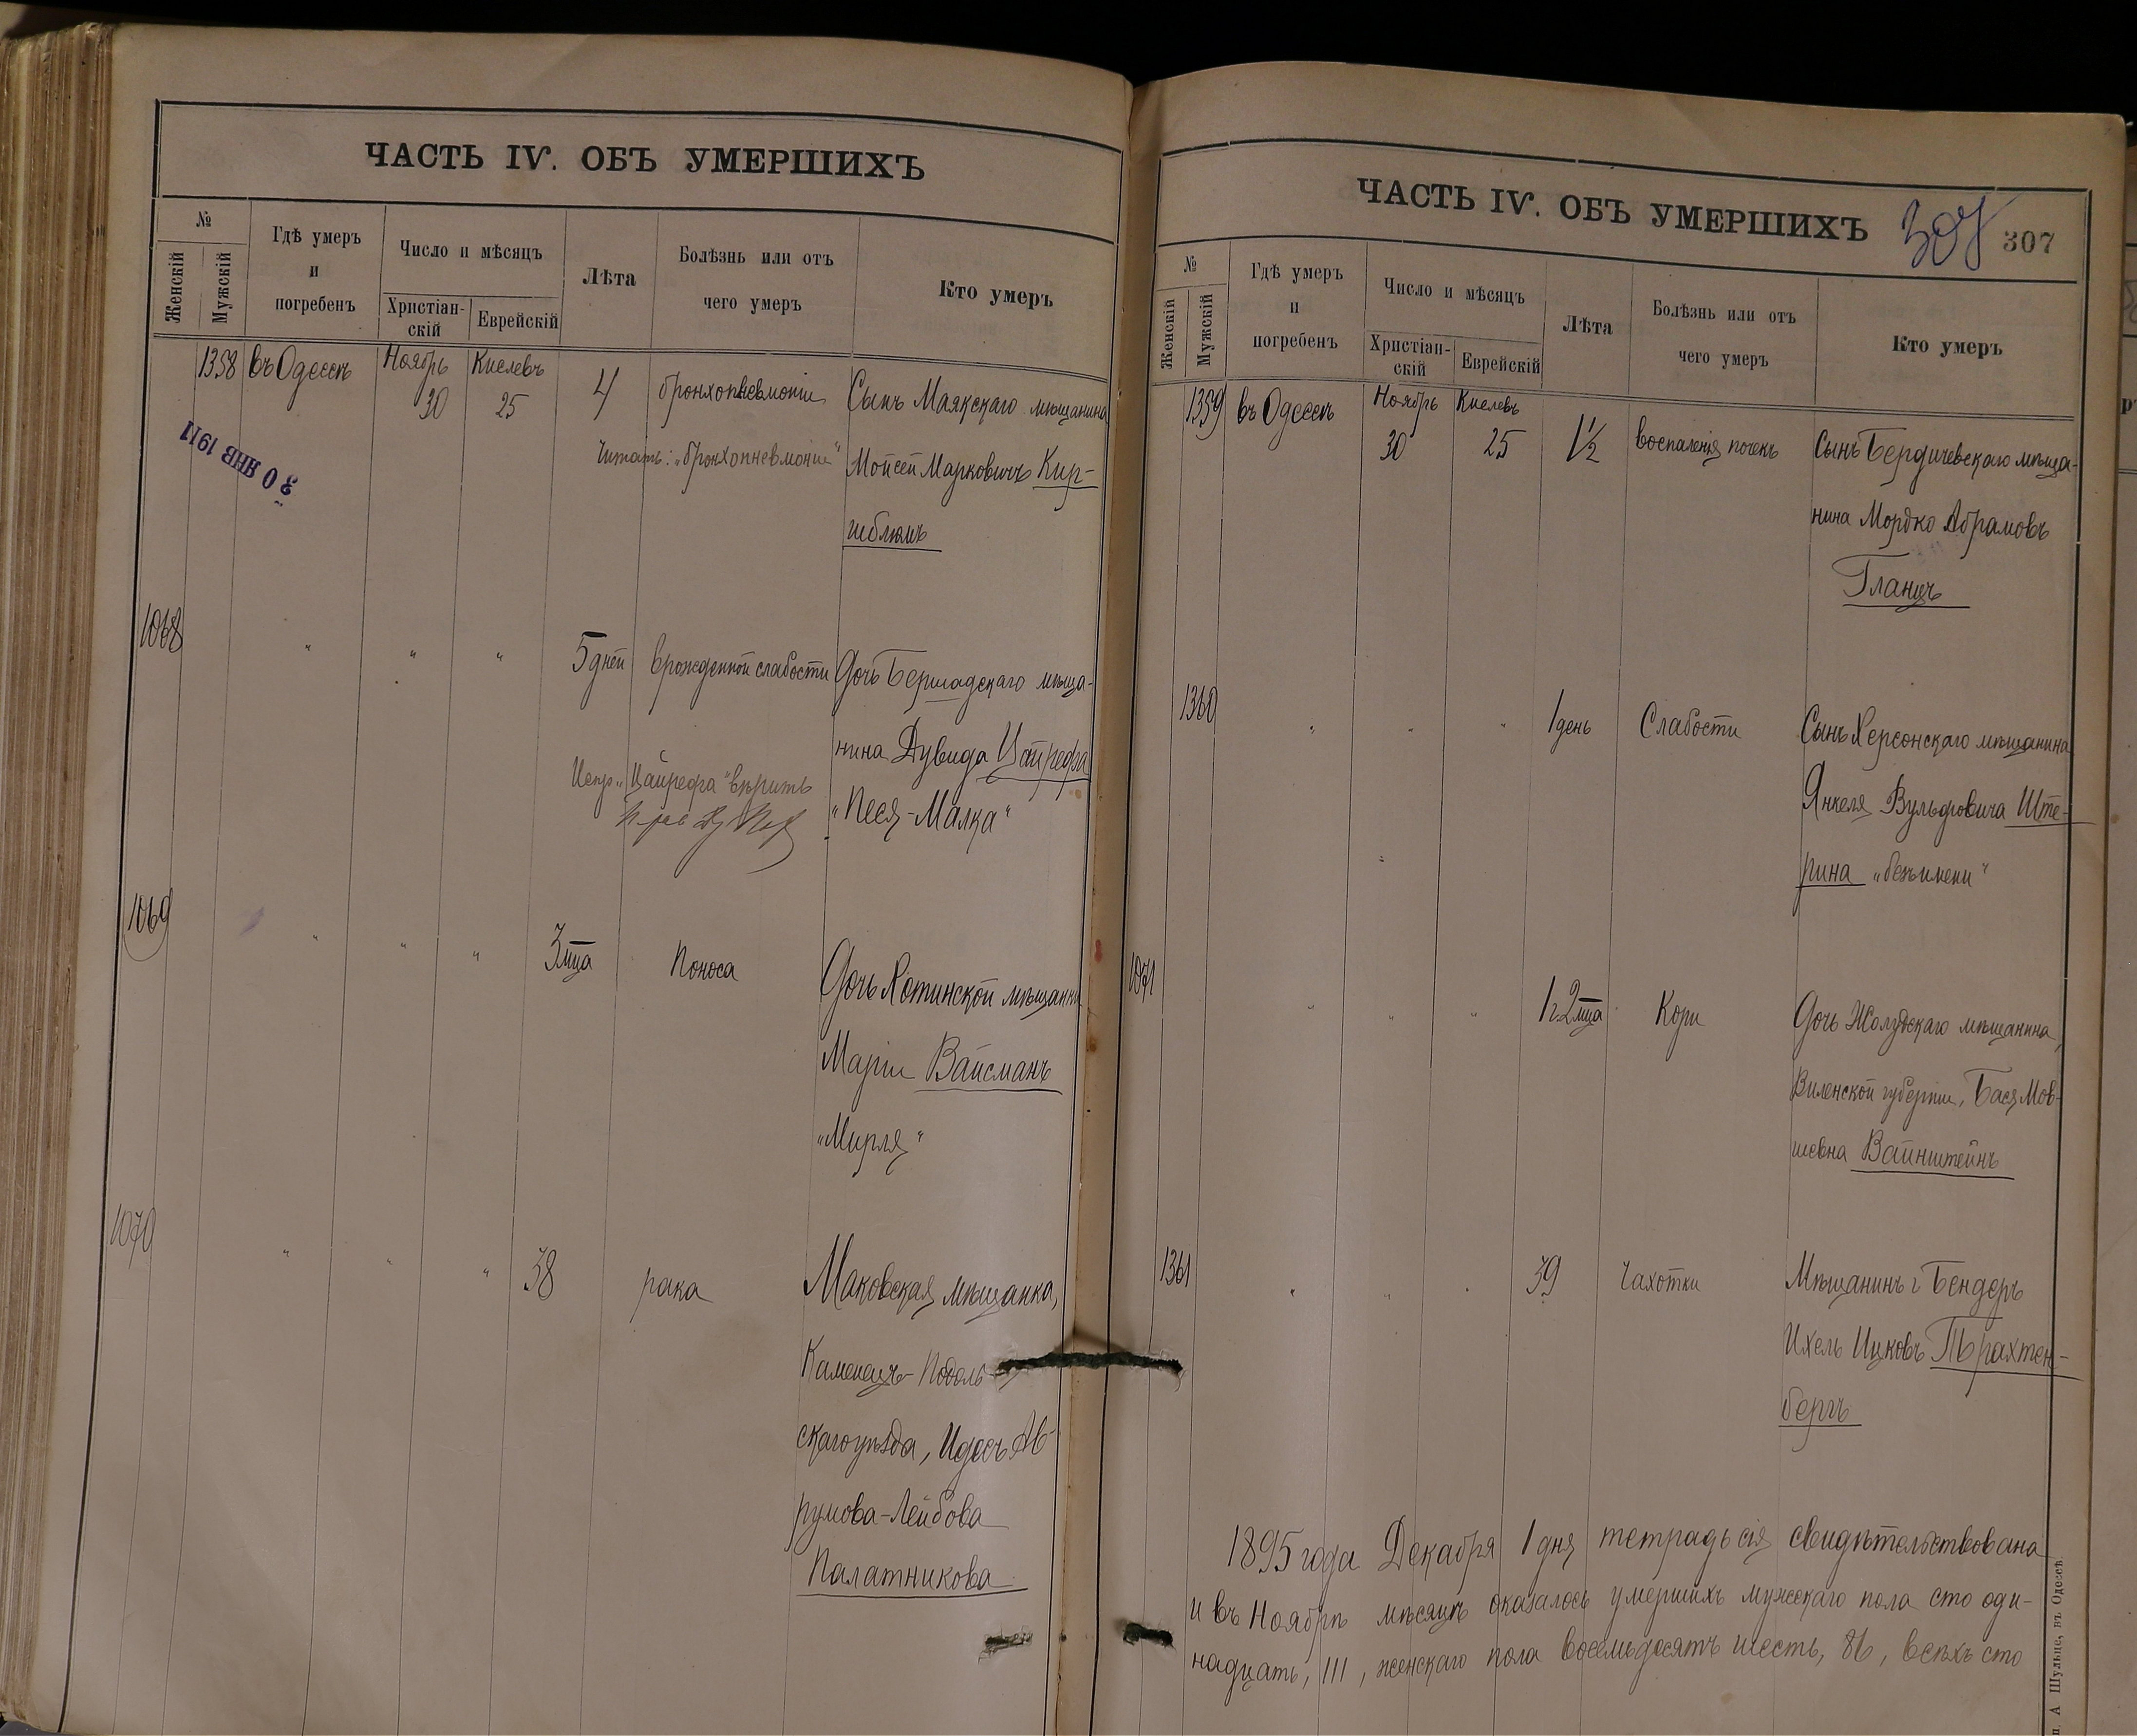 ЧАСТЬ IV. ОБЪ УМЕРШИХЪ
№
Женскій
Мужскій
Гдѣ умеръ
и
погребенъ
Число и мѣсяцъ
Христіан-
скій
Еврейскій
Лѣта
Болѣзнь или отъ
чего умеръ
Кто умеръ
1358 въ Одессѣ Ноябрь 30 Кислевъ 25 4 бронхопневмоніи Сынъ Маякскаго мѣщанина
Читать: „бронхопневмоніи" Мойсей Марковичъ Кир-
30 ЯНВ 1911
шблюмъ
1068 " " " 5 дней врожденной слабости Дочь Бершадскаго мѣща-
нина Дувида Цайрефа
„Цайрефа" вѣрить
„Песя-Малка"
1069 " " " 3 мца Поноса Дочь Хотинской мѣщанки
Маріи Вайсманъ
„Мирля"
1070 " " " 38 рака Маковская мѣщанка,
Каменецъ-Подоль-
скаго уѣзда, Идесъ Ав-
румова-Лейбова
Палатникова
ЧАСТЬ IV. ОБЪ УМЕРШИХЪ
307
307
№
Женскій
Мужскій
Гдѣ умеръ
и
погребенъ
Число и мѣсяцъ
Христіан-
скій
Еврейскій
Лѣта
Болѣзнь или отъ
чего умеръ
Кто умеръ
1359 въ Одессѣ Ноябрь 30 Кислевъ 25 1½ воспаленія почекъ Сынъ Бердичевскаго мѣща-
нина Мордко Абрамовъ
Гланцъ
1360 " " " 1 день Слабости Сынъ Херсонскаго мѣщанина
Янкеля Вульфовича Ште-
рина „безъимени"
1071 " " " 1 г. 2 мца Кори Дочь Жолудскаго мѣщанина,
Виленской губерніи, Бася Мов-
шевна Вайнштейнъ
1361 " " " 39 Чахотки Мѣщанинъ г Бендеръ
Ихель Ицковъ Трахтен-
бергъ
1895 года Декабря 1 дня тетрадь сія свидѣтельствована
и въ Ноябрѣ мѣсяцѣ оказалось умершихъ мужескаго пола сто оди-
надцать, 111, женскаго пола восемьдесятъ шесть, 86, всѣхъ сто
А Шульце, въ Одессѣ.